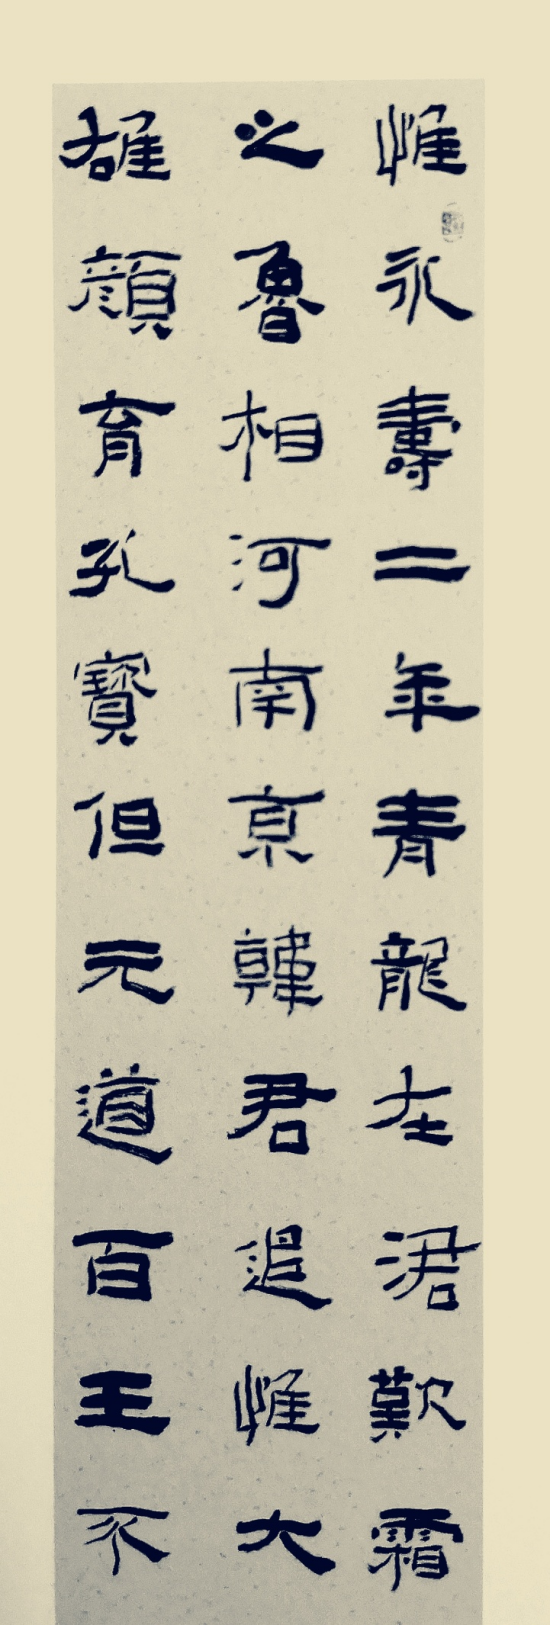 惟永壽二年青龍在涒歎霜
之魯相河南京韓君追惟大
雄顏育孔寶但元道百王不